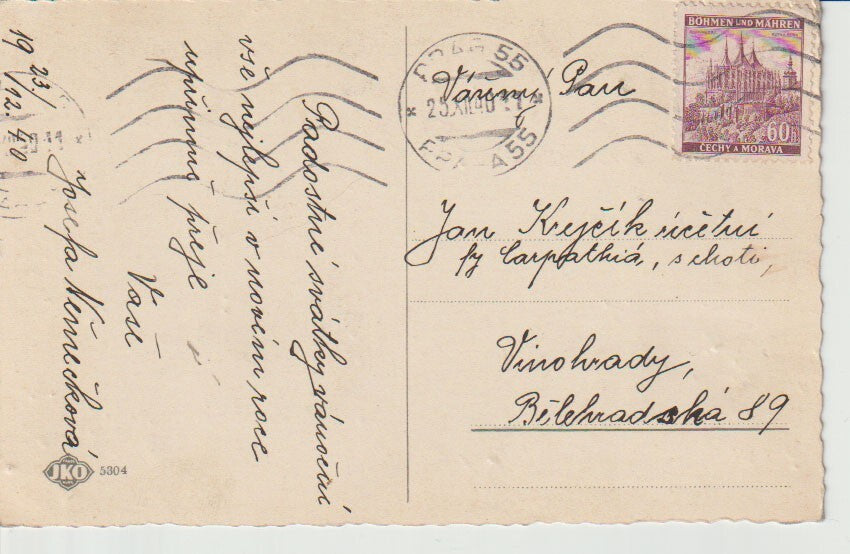 Radostné svátky vánoční
vše nejlepší v novém roce
upřímně přeje
Vaše
Josefa Němečková
23/
19 /12. 40
JKO 5304
Vážený Pan
Jan Krejčík účetní
fy Carpathia, s chotí,
Vinohrady,
Bělehradská 89
BÖHMEN UND MÄHREN
60 h
ČECHY A MORAVA
PRAG 55
23.XII.40
PRAHA 55